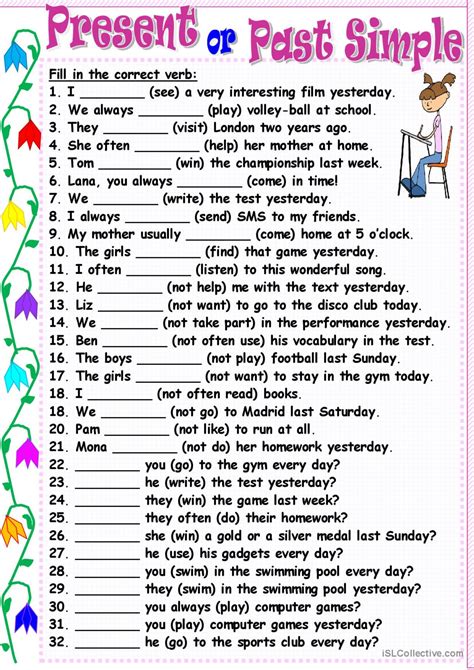 Present or Past Simple
Fill in the correct verb:
1. I ________ (see) a very interesting film yesterday.
2. We always ________ (play) volley-ball at school.
3. They ________ (visit) London two years ago.
4. She often ________ (help) her mother at home.
5. Tom ________ (win) the championship last week.
6. Lana, you always ________ (come) in time!
7. We ________ (write) the test yesterday.
8. I always ________ (send) SMS to my friends.
9. My mother usually ________ (come) home at 5 o'clock.
10. The girls ________ (find) that game yesterday.
11. I often ________ (listen) to this wonderful song.
12. He ________ (not help) me with the text yesterday.
13. Liz ________ (not want) to go to the disco club today.
14. We ________ (not take part) in the performance yesterday.
15. Ben ________ (not often use) his vocabulary in the test.
16. The boys ________ (not play) football last Sunday.
17. The girls ________ (not want) to stay in the gym today.
18. I ________ (not often read) books.
18. We ________ (not go) to Madrid last Saturday.
20. Pam ________ (not like) to run at all.
21. Mona ________ (not do) her homework yesterday.
22. ________ you (go) to the gym every day?
23. ________ he (write) the test yesterday?
24. ________ they (win) the game last week?
25. ________ they often (do) their homework?
26. ________ she (win) a gold or a silver medal last Sunday?
27. ________ he (use) his gadgets every day?
28. ________ you (swim) in the swimming pool every day?
29. ________ they (swim) in the swimming pool every day?
30. ________ you always (play) computer games?
31. ________ you (play) computer games yesterday?
32. ________ he (go) to the sports club every day?
iSLCollective.com